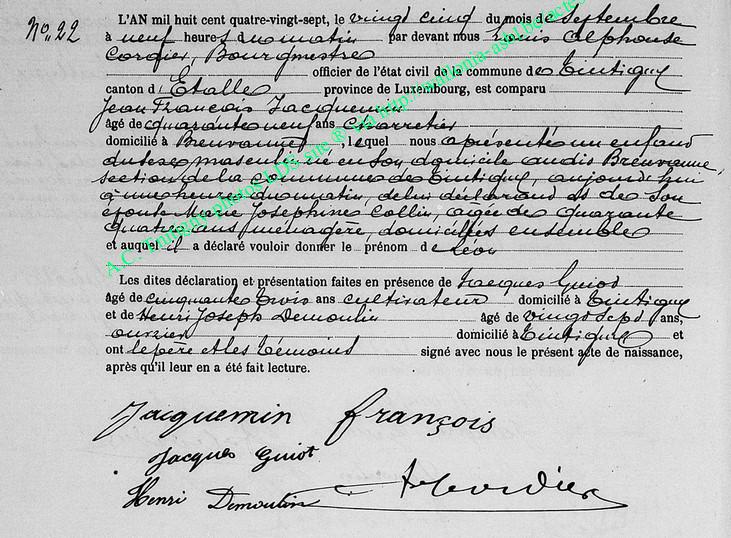 No. 22
L'AN mil huit cent quatre-vingt-sept, le vingt cinq du mois de Septembre
à neuf heures du matin par devant nous Louis Alphonse
Cordier, Bourgmestre
officier de l'état civil de la commune de Tintigny
canton d'Etalle province de Luxembourg, est comparu
Jean François Jacquemin
âgé de quarante neuf ans Charretier
domicilié à Breuvanne, lequel nous a présenté un enfant
du sexe masculin né en son domicile audit Breuvanne,
section de la commune de Tintigny, aujourd'hui
à une heure du matin, de lui déclarant et de son
épouse Marie Josephine Collin, agée de quarante
quatre ans, ménagère, domiciliés ensemble
et auquel il a déclaré vouloir donner le prénom de Léon
Les dites déclaration et présentation faites en présence de Jacques Guiot
âgé de cinquante trois ans cultivateur domicilié à Tintigny
et de Henri Joseph Demoulin âgé de vingt sept ans,
ouvrier domicilié à Tintigny et
ont le père et les témoins signé avec nous le présent acte de naissance,
après qu'il leur en a été fait lecture.
Jacquemin françois
Jacques Guiot
Henri Demoulin
A Cordier
A.C. Tintigny photos LDS sur ® via http://wallonia-asbl.be